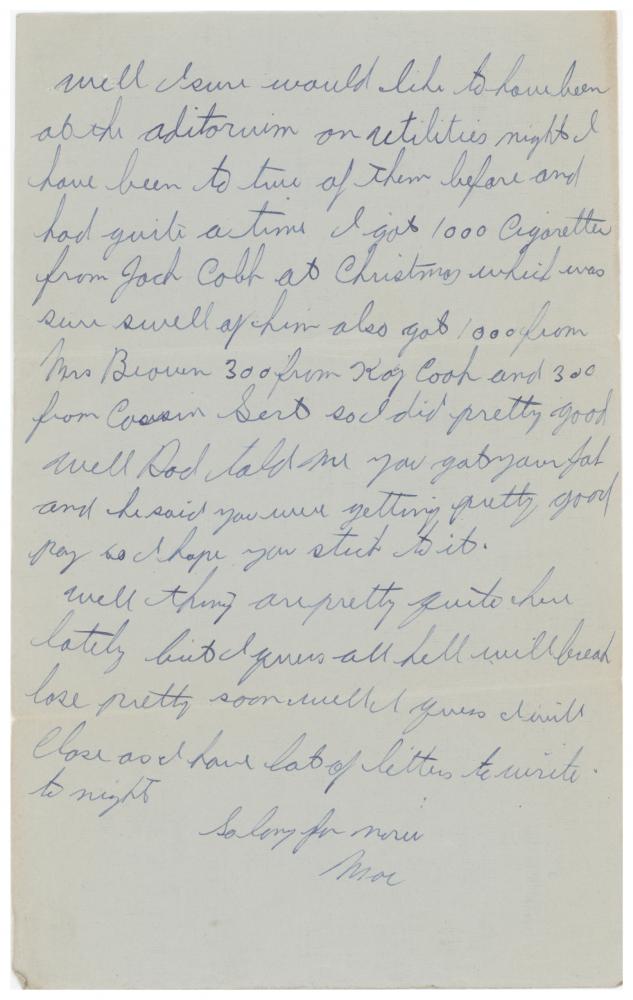 well I sure would like to have been
at the aditoruim on utilities night I
have been to two of them before and
had quite a time I got 1000 Cigarettes
from Jack Cobb at Christmas which was
sure swell of him also got 1000 from
Mrs Brown 300 from Kay Cook and 300
from Cousin Gert so I did pretty good
well Dad told me you got your
and he said you were getting pretty good
pay so I hope you stick to it.
well things are pretty quite here
lately but I guess all hell will break
lose pretty soon well I guess I will
Close as I have lot of letters to write.
to night
So long for now
Moe